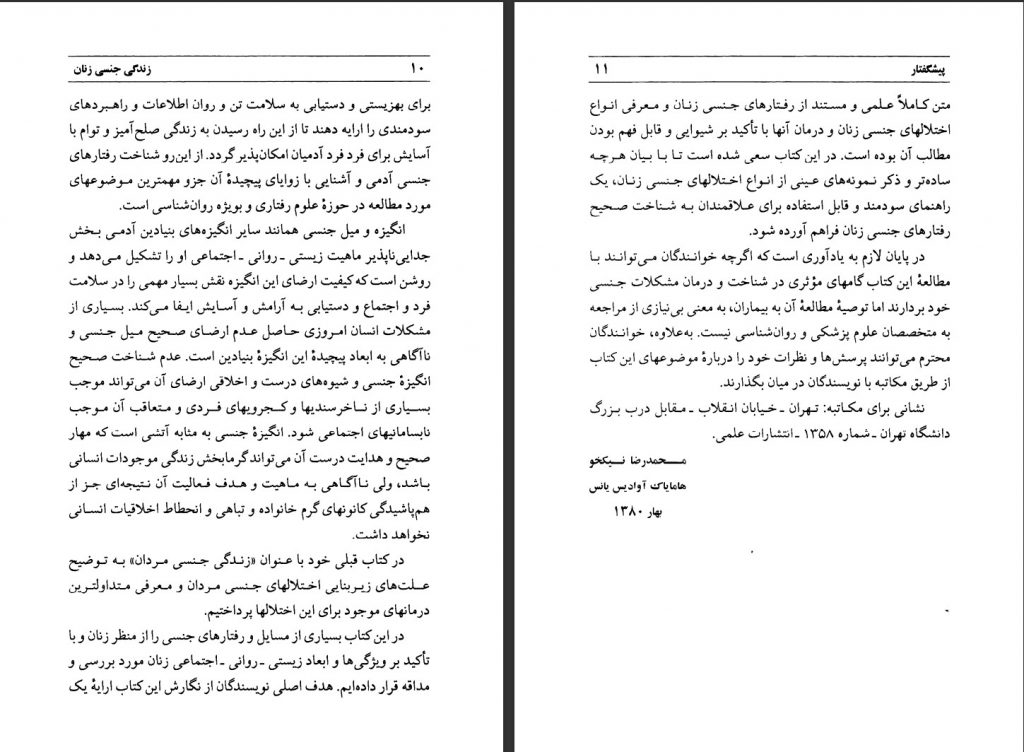 زندگی جنسی زنان ۱۰
برای بهزیستی و دستیابی به سلامت تن و روان اطلاعات و راهبردهای
سودمندی را ارایه دهند تا از این راه رسیدن به زندگی صلح‌آمیز و توام با
آسایش برای فرد فرد آدمیان امکان‌پذیر گردد. از این‌رو شناخت رفتارهای
جنسی آدمی و آشنایی با زوایای پیچیدهٔ آن جزو مهمترین موضوعهای
مورد مطالعه در حوزهٔ علوم رفتاری و بویژه روان‌شناسی است.
انگیزه و میل جنسی همانند سایر انگیزه‌های بنیادین آدمی بخش
جدایی‌ناپذیر ماهیت زیستی ـ روانی ـ اجتماعی او را تشکیل می‌دهد و
روشن است که کیفیت ارضای این انگیزه نقش بسیار مهمی را در سلامت
فرد و اجتماع و دستیابی به آرامش و آسایش ایفا می‌کند. بسیاری از
مشکلات انسان امروزی حاصل عدم ارضای صحیح میل جنسی و
ناآگاهی به ابعاد پیچیدهٔ این انگیزهٔ بنیادین است. عدم شناخت صحیح
انگیزهٔ جنسی و شیوه‌های درست و اخلاقی ارضای آن می‌تواند موجب
بسیاری از ناخرسندیها و کجرویهای فردی و متعاقب آن موجب
نابسامانیهای اجتماعی شود. انگیزهٔ جنسی به مثابه آتشی است که مهار
صحیح و هدایت درست آن می‌تواند گرمابخش زندگی موجودات انسانی
باشد، ولی ناآگاهی به ماهیت و هدف فعالیت آن نتیجه‌ای جز از
هم‌پاشیدگی کانونهای گرم خانواده و تباهی و انحطاط اخلاقیات انسانی
نخواهد داشت.
در کتاب قبلی خود با عنوان «زندگی جنسی مردان» به توضیح
علت‌های زیربنایی اختلالهای جنسی مردان و معرفی متداولترین
درمانهای موجود برای این اختلالها پرداختیم.
در این کتاب بسیاری از مسایل و رفتارهای جنسی را از منظر زنان و با
تأکید بر ویژگی‌ها و ابعاد زیستی ـ روانی ـ اجتماعی زنان مورد بررسی و
مداقه قرار داده‌ایم. هدف اصلی نویسندگان از نگارش این کتاب ارایهٔ یک
پیشگفتار ۱۱
متن کاملاً علمی و مستند از رفتارهای جنسی زنان و معرفی انواع
اختلالهای جنسی زنان و درمان آنها با تأکید بر شیوایی و قابل فهم بودن
مطالب آن بوده است. در این کتاب سعی شده است تا با بیان هرچه
ساده‌تر و ذکر نمونه‌های عینی از انواع اختلالهای جنسی زنان، یک
راهنمای سودمند و قابل استفاده برای علاقمندان به شناخت صحیح
رفتارهای جنسی زنان فراهم آورده شود.
در پایان لازم به یادآوری است که اگرچه خوانندگان می‌توانند با
مطالعهٔ این کتاب گامهای مؤثری در شناخت و درمان مشکلات جنسی
خود بردارند اما توصیهٔ مطالعهٔ آن به بیماران، به معنی بی‌نیازی از مراجعه
به متخصصان علوم پزشکی و روان‌شناسی نیست. به‌علاوه، خوانندگان
محترم می‌توانند پرسش‌ها و نظرات خود را دربارهٔ موضوعهای این کتاب
از طریق مکاتبه با نویسندگان در میان بگذارند.
نشانی برای مکاتبه: تهران ـ خیابان انقلاب ـ مقابل درب بزرگ
دانشگاه تهران ـ شماره ۱۳۵۸ ـ انتشارات علمی.
محمدرضا نیکخو
هامایاک آوادیس یانس
بهار ۱۳۸۰